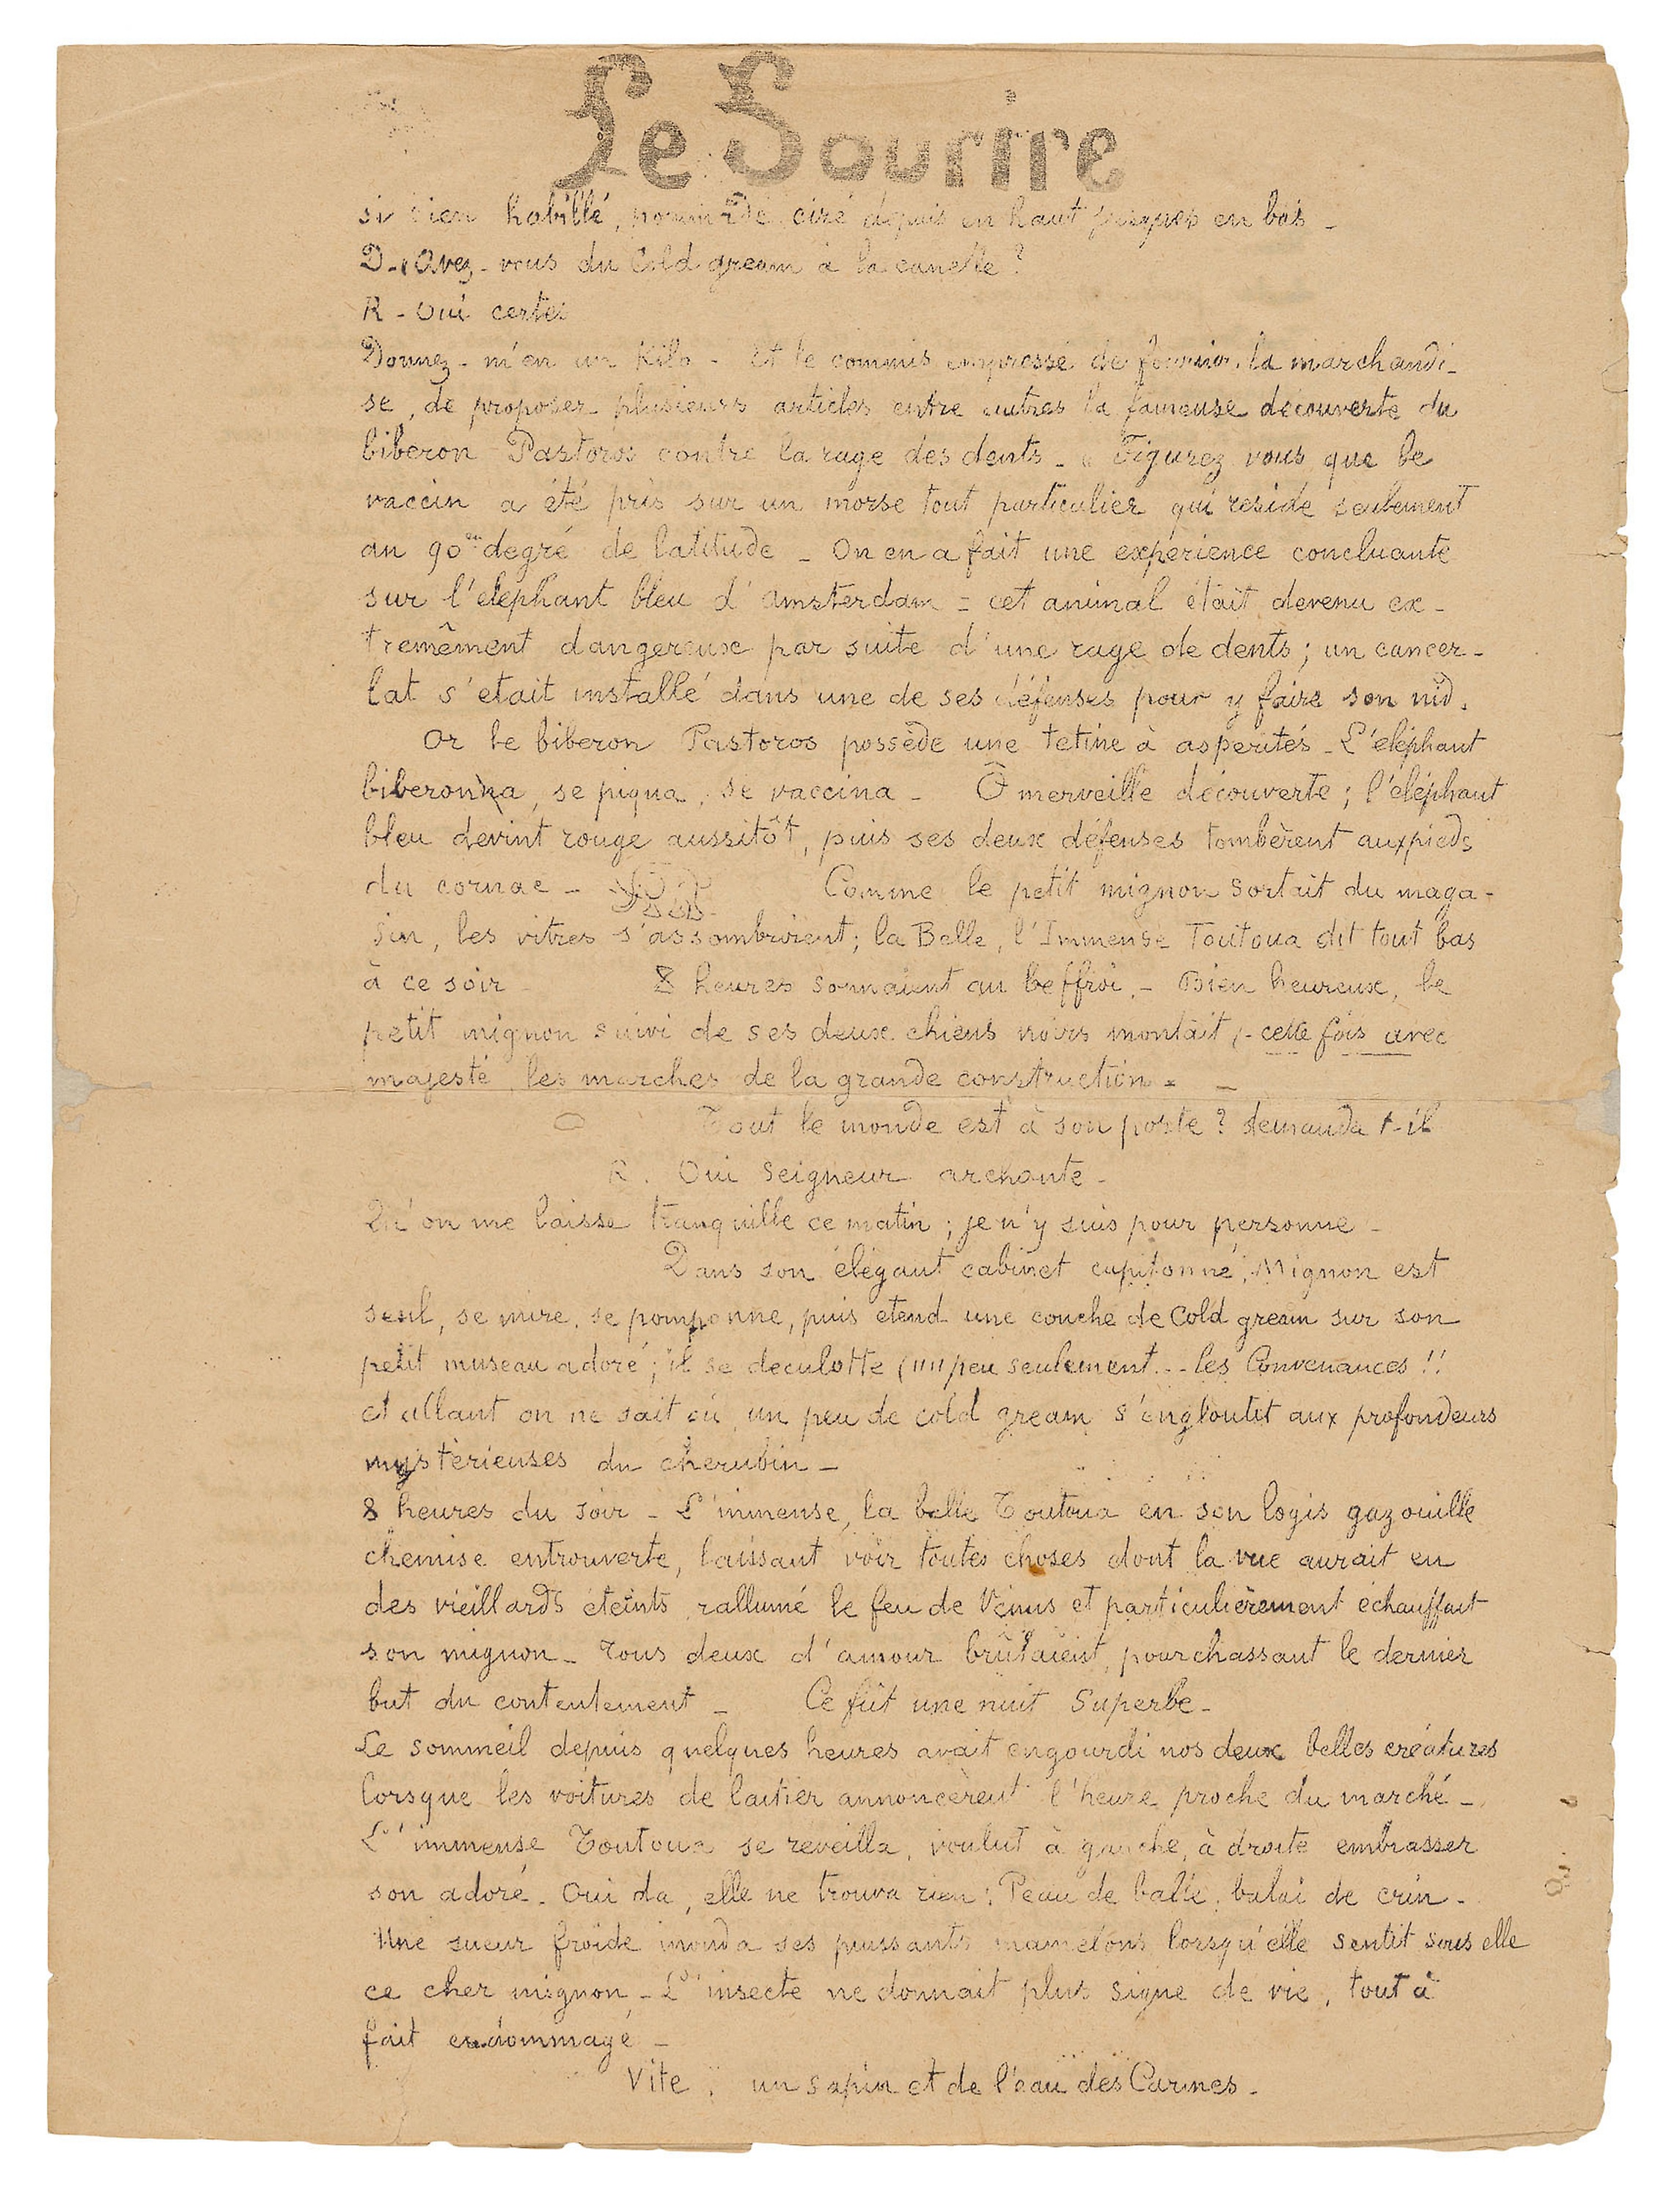 Le Sourire
si bien habillé, pommadé ciré depuis en haut jusques en bas -
D - Avez-vous du Cold gream à la canelle ?
R - Oui certes
Donnez-m'en un Kilo - Et le commis empressé de fournir la marchandi-
se, de proposer plusieurs articles entre autres la fameuse découverte du
biberon Pastoros contre la rage des dents - " Figurez vous que le
vaccin a été pris sur un morse tout particulier qui reside seulement
au 90me degré de latitude - On en a fait une expérience concluante
sur l'elephant bleu d'Amsterdam = cet animal était devenu ex-
tremêment dangereux par suite d'une rage de dents ; un cancer-
lat s'etait installé dans une de ses défenses pour y faire son nid.
Or le biberon Pastoros possède une tetine à asperités - L'eléphant
biberonna, se piqua, se vaccina - Ô merveille découverte ; l'éléphant
bleu devint rouge aussitôt, puis ses deux défenses tombèrent aux pieds
du cornac - Comme le petit mignon sortait du maga-
sin, les vitres s'assombrirent ; la Belle, l'Immense Toutoua dit tout bas
à ce soir - 8 heures sonnaient au beffroi. - Bien heureux, le
petit mignon suivi de ses deux chiens noirs montait, - cette fois avec
majesté les marches de la grande construction = -
Tout le monde est à son poste ? demanda t-il
R. Oui Seigneur archonte -
Qu'on me laisse tranquille ce matin ; je n'y suis pour personne -
Dans son élégant cabinet capitonné, Mignon est
seul, se mire, se pomponne, puis etend une couche de Cold gream sur son
petit museau adoré ; il se deculotte (un peu seulement... les Convenances !!
et allant on ne sait où, un peu de cold gream s'engloutit aux profondeurs
mystèrieuses du cherubin -
8 heures du soir - L'immense, la belle Toutoua en son logis gazouille
chemise entrouverte, laissant voir toutes choses dont la vue aurait en
des vieillards éteints, rallumé le feu de Vénus et particulièrement échauffait
son mignon - Tous deux d'amour brûlaient, pourchassant le dernier
but du contentement - Ce fût une nuit Superbe -
Le sommeil depuis quelques heures avait engourdi nos deux belles créatures
lorsque les voitures de laitier annoncèrent l'heure proche du marché -
L'immense Toutoua se reveilla, voulut à gauche, à droite embrasser
son adoré - Oui da, elle ne trouva rien : Peau de balle, balai de crin -
Une sueur froide inonda ses puissants mamelons lorsqu'elle sentit sous elle
ce cher mignon - L'insecte ne donnait plus signe de vie, tout à
fait endommagé -
Vite, un sapin et de l'eau des Carmes -